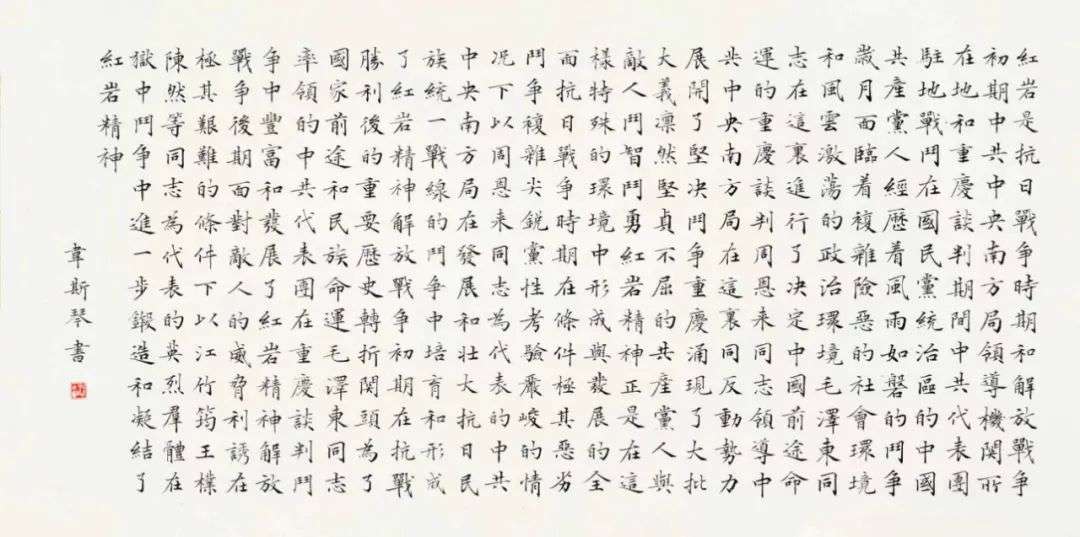 紅岩是抗日戰争時期和解放戰争
初期中共中央南方局領導機関所
在地和重慶談判期間中共代表團
駐地戰鬥在國民黨統治區的中國
共產黨人經歷着風雨如磐的鬥争
歲月面臨着複雜險惡的社會環境
和風雲激蕩的政治環境毛澤東同
志在這裏進行了决定中國前途命
運的重慶談判周恩来同志領導中
共中央南方局在這裏同反動勢力
展開了堅决鬥争重慶涌現了大批
大義凛然堅貞不屈的共產黨人與
敵人鬥智鬥勇紅岩精神正是在這
樣特殊的環境中形成與發展的全
面抗日戰争時期在條件極其惡劣
鬥争複雜尖銳黨性考驗嚴峻的情
况下以周恩来同志為代表的中共
中央南方局在發展和壮大抗日民
族統一戰線的鬥争中培育和形成
了紅岩精神解放戰争初期在抗戰
勝利後的重要歷史轉折関頭為了
國家前途和民族命運毛澤東同志
率領的中共代表團在重慶談判鬥
争中豐富和發展了紅岩精神解放
戰争後期面對敵人的威脅利誘在
極其艱難的條件下以江竹筠王樸
陳然等同志為代表的英烈羣體在
獄中鬥争中進一步鍛造和凝結了
紅岩精神
韋斯琴書